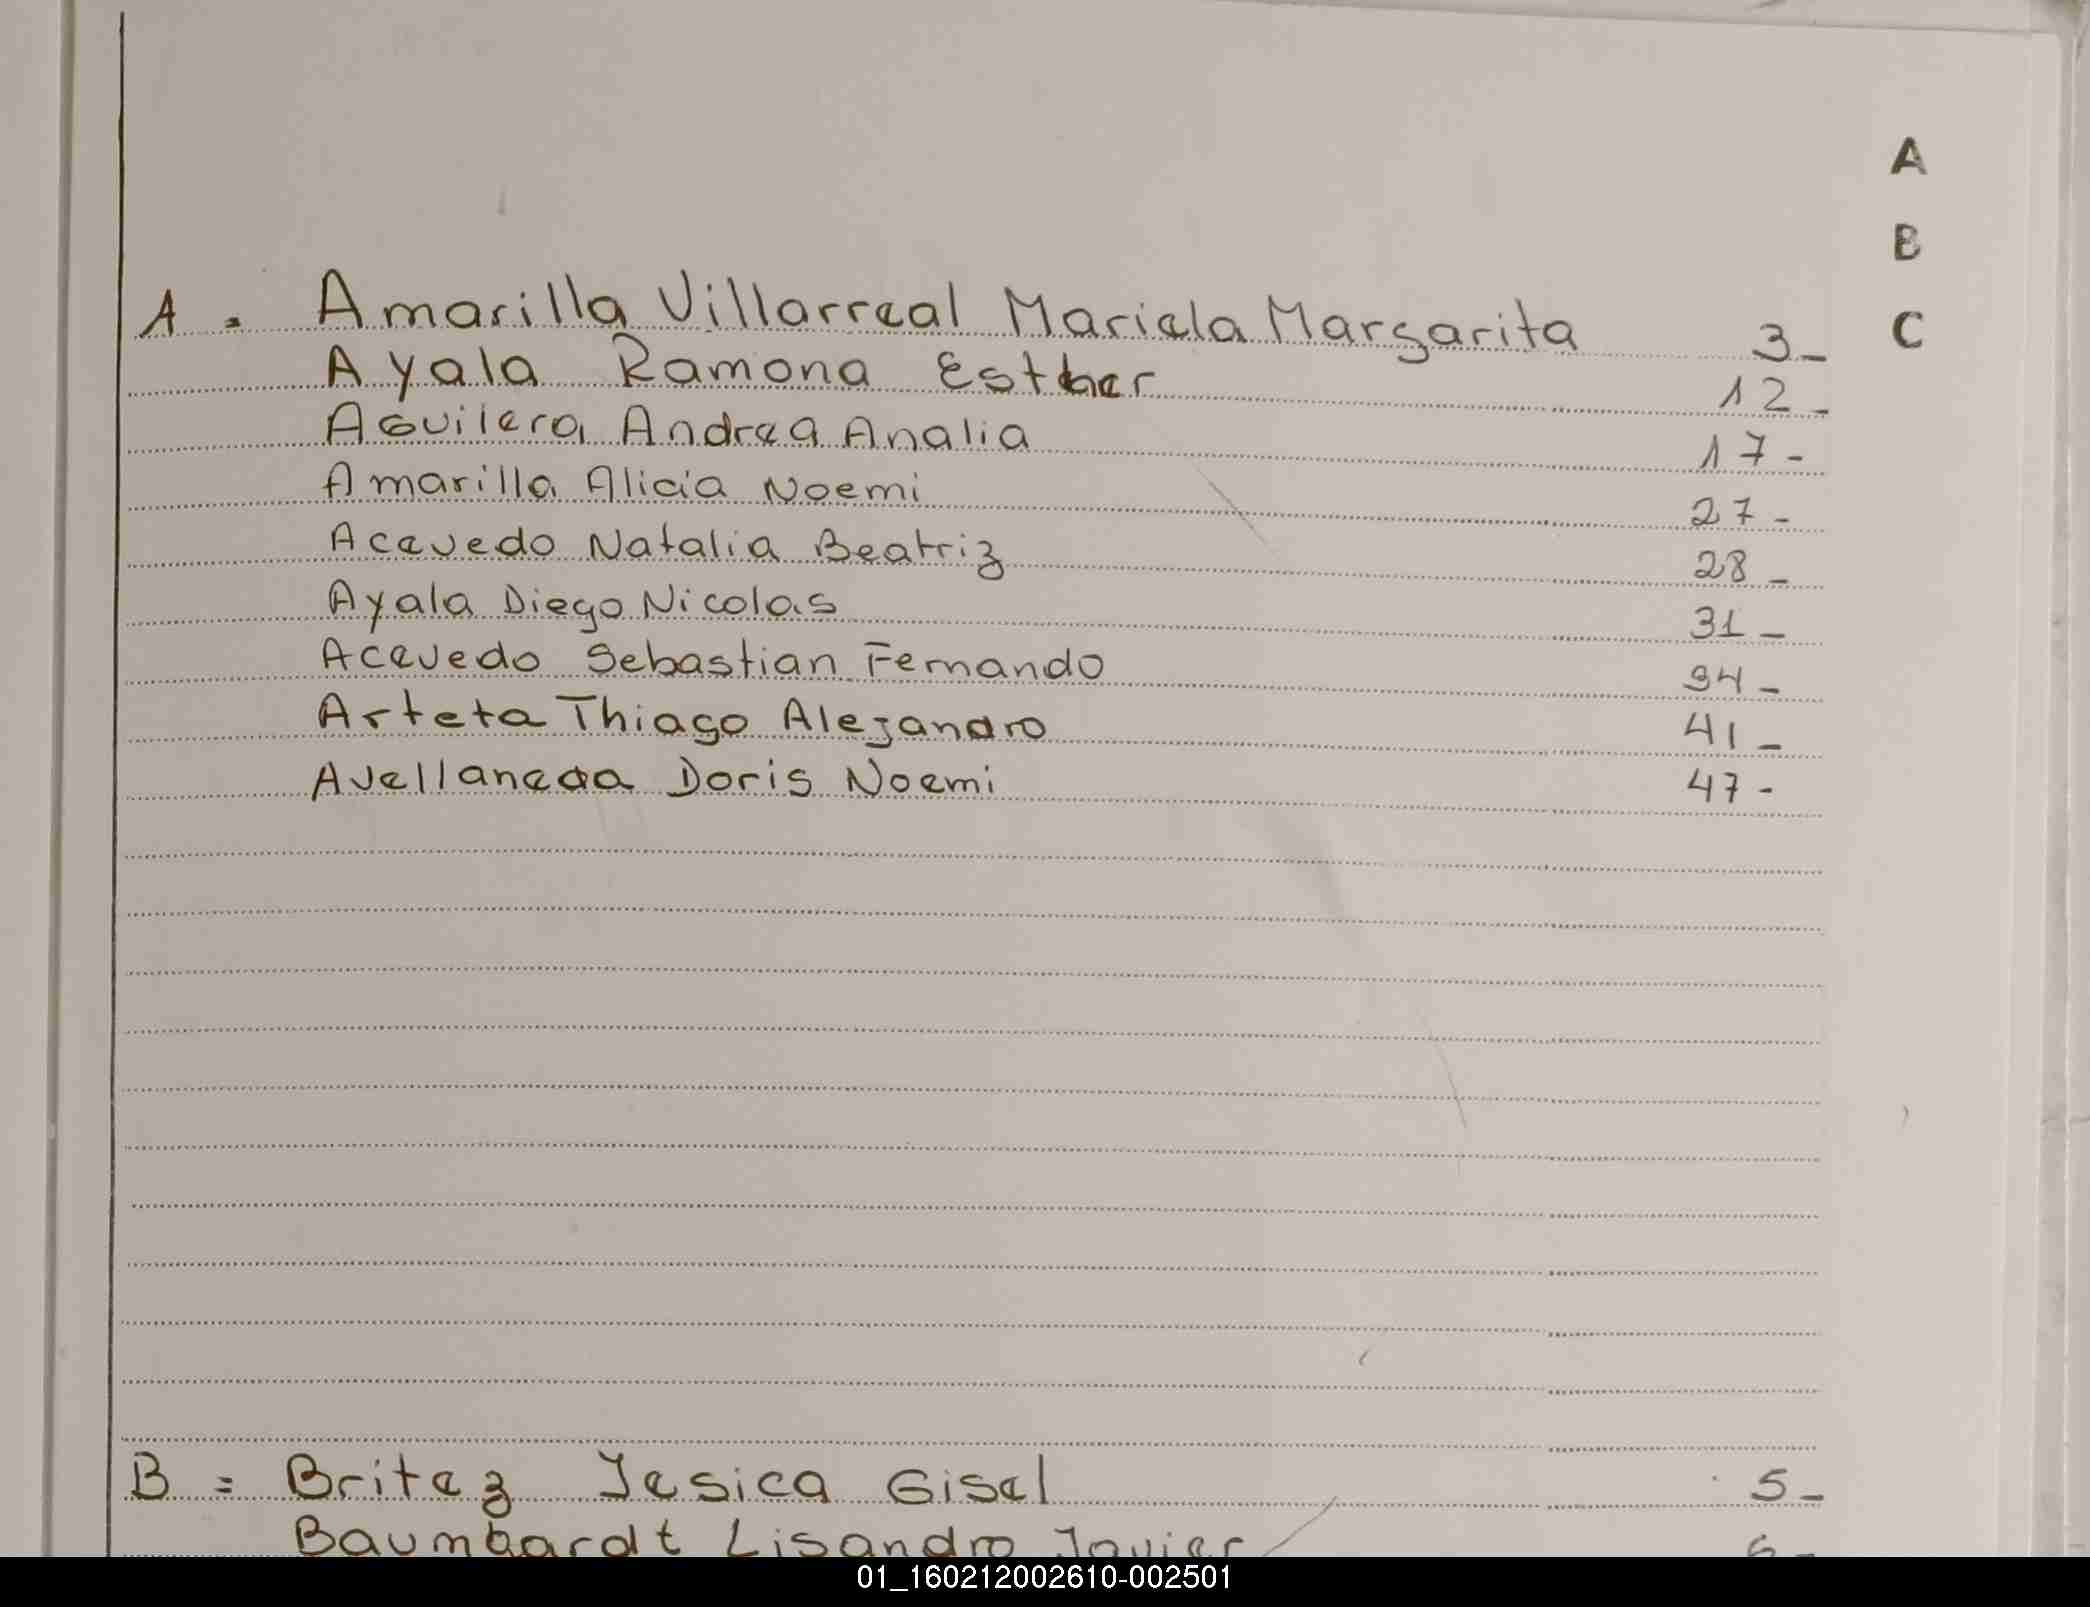 A
B
C
A = Amarilla Villarreal Mariela Margarita 3_
Ayala Ramona Esther 12_
Aguilera Andrea Analia 17-
Amarilla Alicia Noemi 27-
Acevedo Natalia Beatriz 28_
Ayala Diego Nicolas 31_
Acevedo Sebastian Fernando 34_
Arteta Thiago Alejandro 41_
Avellaneda Doris Noemi 47-
B = Britez Jesica Gisel 5_
Baumbardt Lisandro Javier 6_
01_160212002610-002501